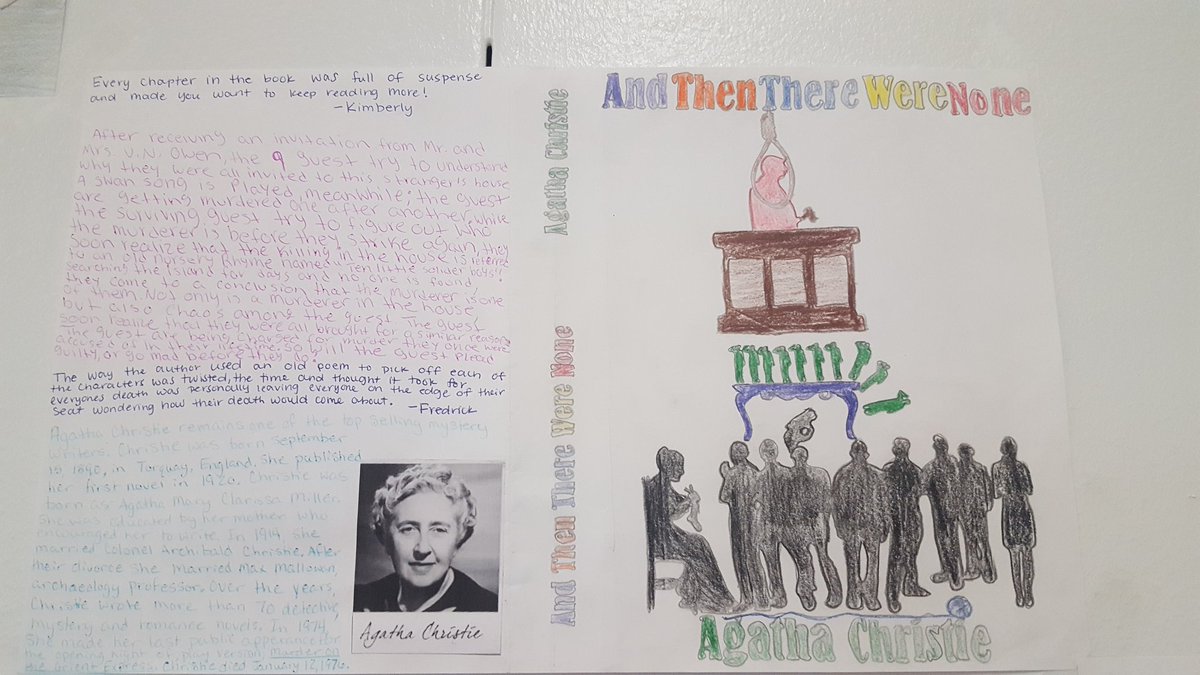 Every chapter in the book was full of suspense
and made you want to keep reading more!
-Kimberly
After receiving an invitation from Mr. and
Mrs. U.N. Owen, the 9 guest try to understand
why they were all invited to this stranger's house
A swan song is played, meanwhile; the guest
are getting murdered one after another, while
the surviving guest try to figure out who
the murderer is before they strike again, they
soon realize that the killing in the house is referred
to an old nursery rhyme named "Ten little solider boys".
Searching the island for days and no one is found,
they come to a conclusion that the murderer is one
of them. Not only is a murderer in the house,
but also chaos among the guest. The guest
soon realize that they were all brought for a similar reason
The guest are being
accused of in their so will the guest plead
guilty, or go mad before they do.
The way the author used an old poem to pick off each of
the characters was twisted, the time and thought it took for
everyones death was personally leaving everyone on the edge of their
seat wondering how their death would come about. -Fredrick
Agatha Christie remains one of the top selling mystery
writers. Christie was born september
15 1890, in Torquay, England, she published
her first novel in 1920. Christie was
born as Agatha Mary Clarissa Miller.
She was educated by her mother who
encouraged her to write. In 1914, she
married Colonel Archibald Christie. After
their divorce she married Max Mallowan,
archaeology professor. Over the years,
Christie wrote more than 70 detective,
mystery and romance novels. In 1974,
She made her last public apperance for
the opening night of play version, Murder on
the Orient Express. Christie died January 12, 1976.
Agatha Christie
Agatha Christie
And Then There Were None
And Then There Were None
Agatha Christie